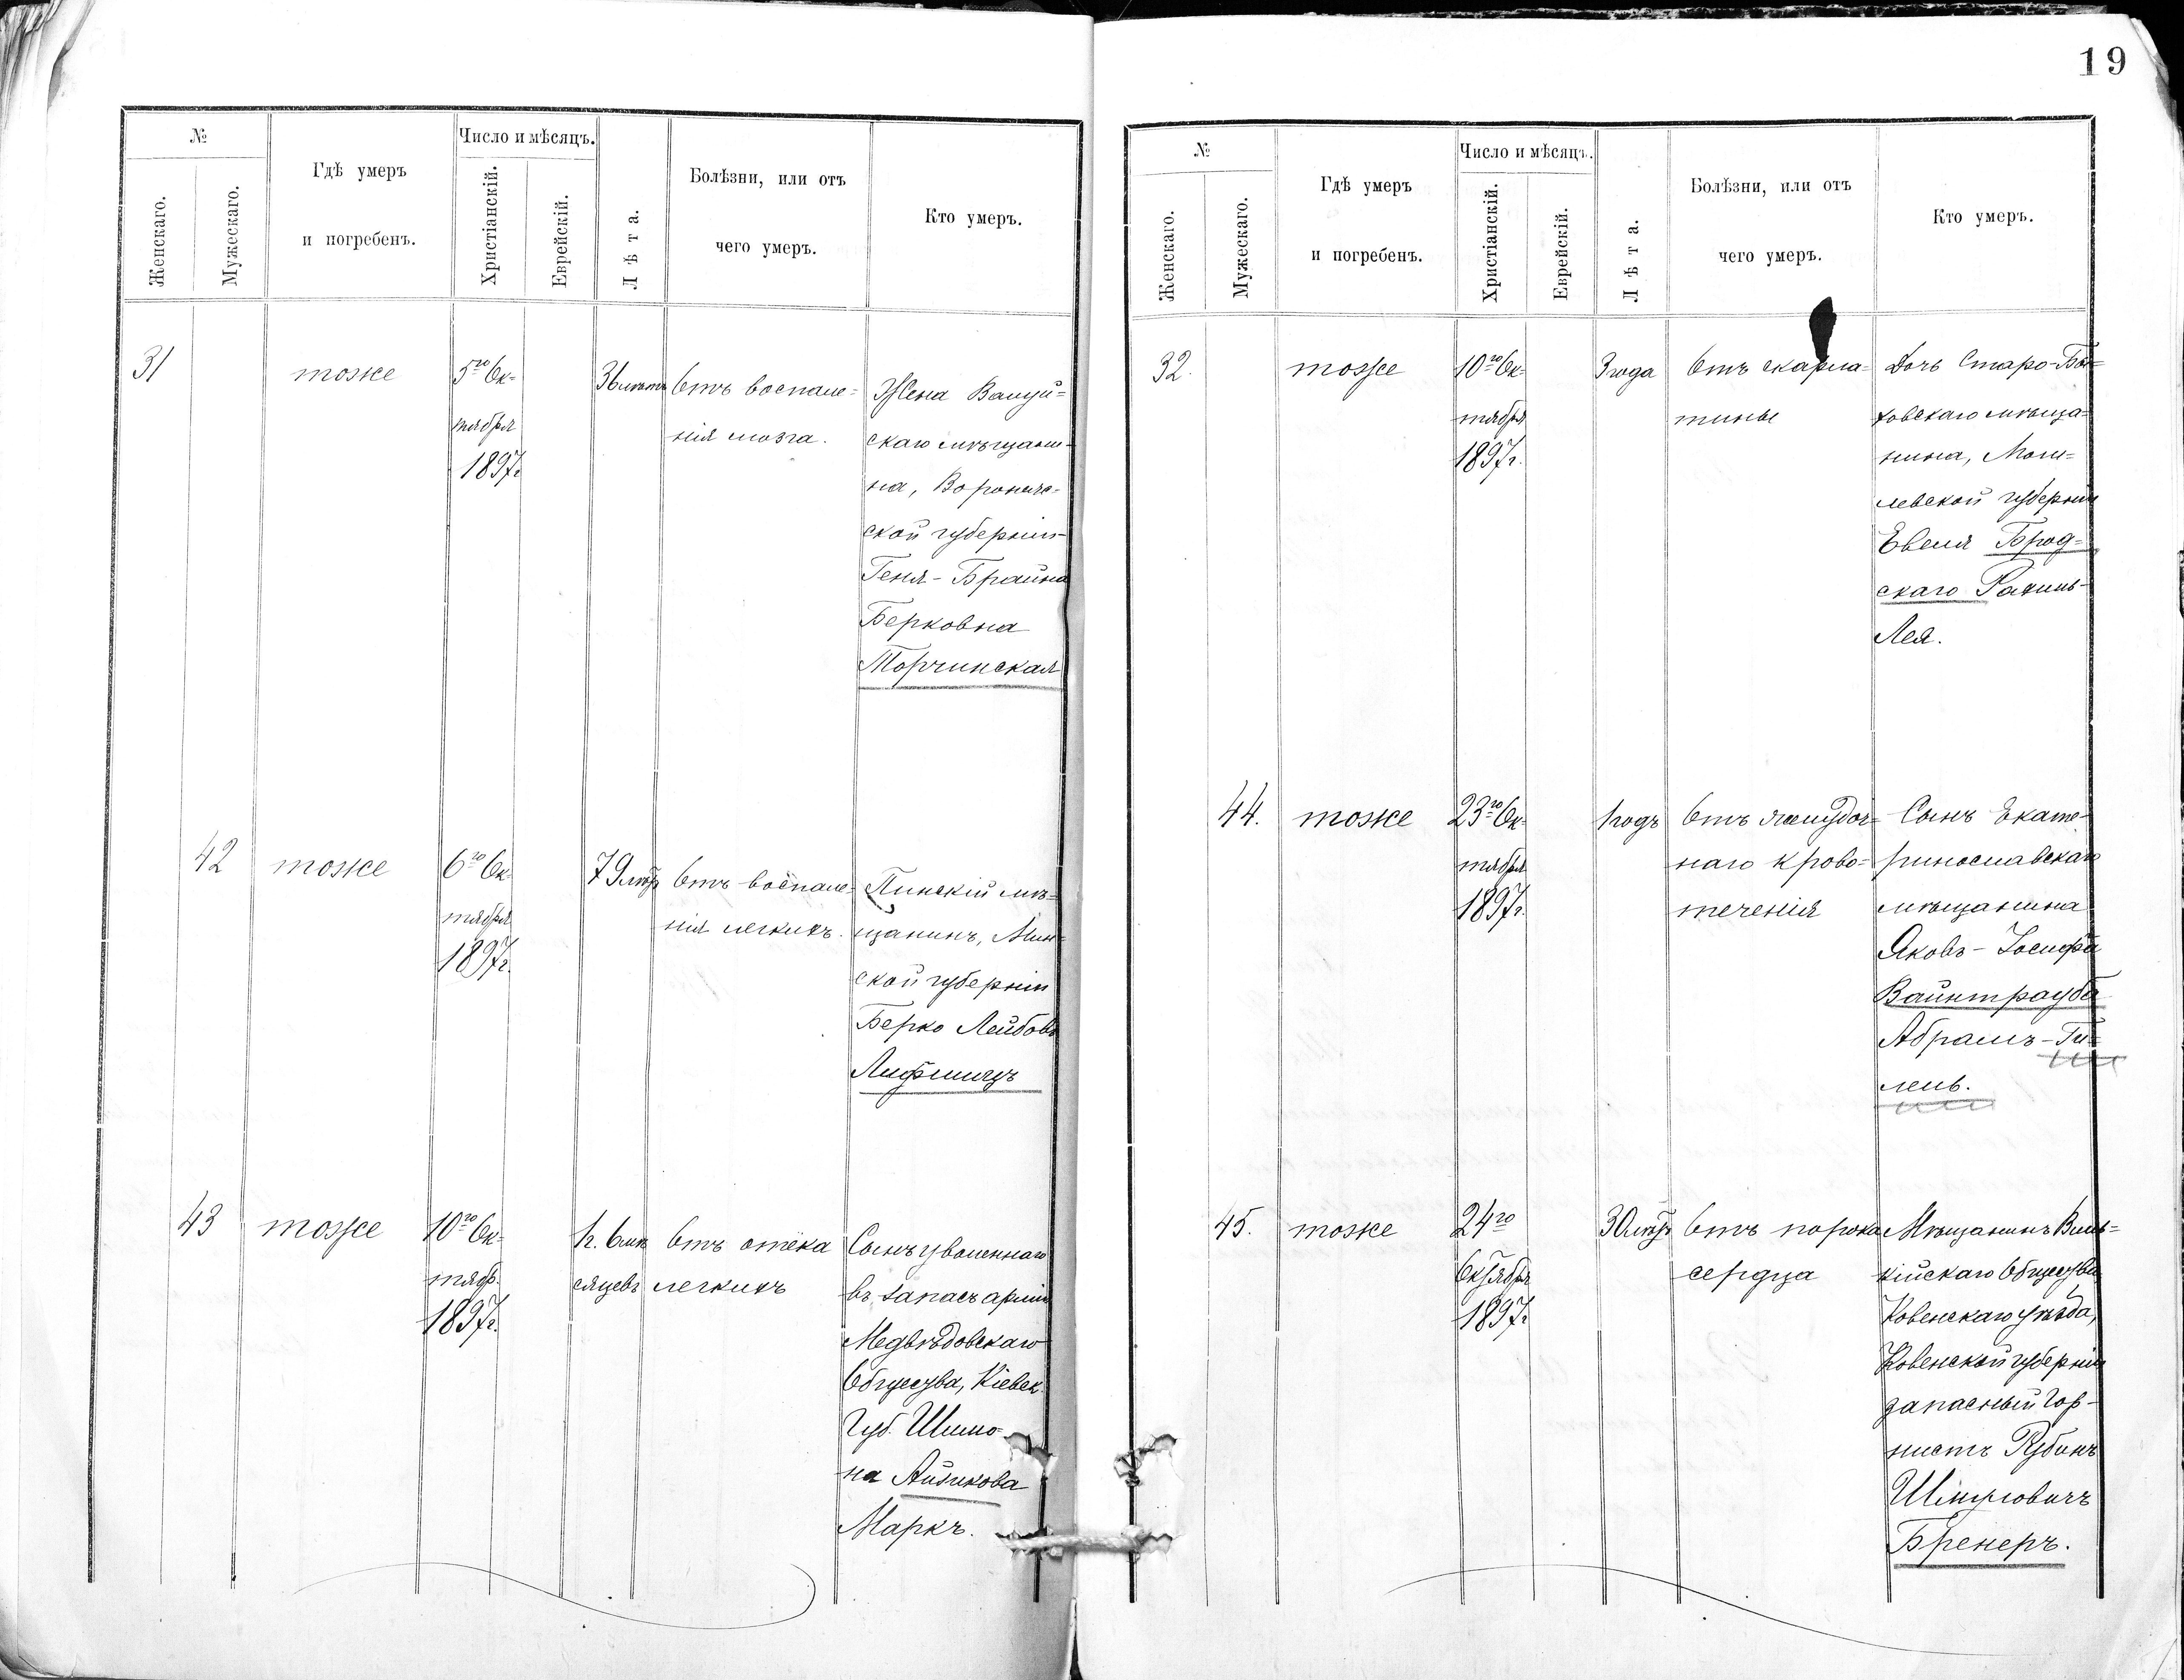 19
№
Женскаго.
Мужескаго.
Гдѣ умеръ
и погребенъ.
Число и мѣсяцъ.
Христіанскій.
Еврейскій.
Лѣта.
Болѣзни, или отъ
чего умеръ.
Кто умеръ.
31
тоже
5го Ок=
тября
1897г.
36 лѣтъ
Отъ воспале=
нія мозга.
Жена Валуй=
скаго мѣщани-
на, Вороняс=
ской губерніи
Геня-Брайна
Берковна
Торчинская
42
тоже
6го Ок-
тября
1897г.
79 лѣтъ
Отъ воспале=
нія легкихъ.
Пинскій мѣ=
щанинъ, Мин=
ской губерніи
Берко Лейбовъ
Лифшицъ
43
тоже
10го Ок-
тябр.
1897г.
1г. 6 мѣ
сяцевъ
Отъ отёка
легкихъ
Сынъ уволеннаго
въ запасъ арміи
Медвѣдовскаго
Общества, Кіевск.
Губ. Шимо-
на Айзикова
Маркъ.
№
Женскаго.
Мужескаго.
Гдѣ умеръ
и погребенъ.
Число и мѣсяцъ.
Христіанскій.
Еврейскій.
Лѣта.
Болѣзни, или отъ
чего умеръ.
Кто умеръ.
32.
тоже
10го Ок-
тября
1897г.
3 года
Отъ скарла=
тины
Дочь Старо-Бы=
ховскаго мѣща=
нина, Моги=
левской губерніи
Евеля Брод=
скаго Рахиль-
Лея.
44.
тоже
23го Ок-
тября
1897г.
1 годъ
Отъ желудоч=
наго крово=
теченія
Сынъ Екате-
ринославскаго
мѣщанина
Яковъ-Іосифа
Вайнтрауба
Абрамъ-Ги=
лель.
45.
тоже
24го
Октября
1897г.
30 лѣтъ
Отъ порока
сердца
Мѣщанинъ Виль=
кійскаго Общества
Ковенскаго уѣзда,
Ковенской губерніи
запасный гор-
нистъ Рубинъ
Шмуловичъ
Бренеръ.